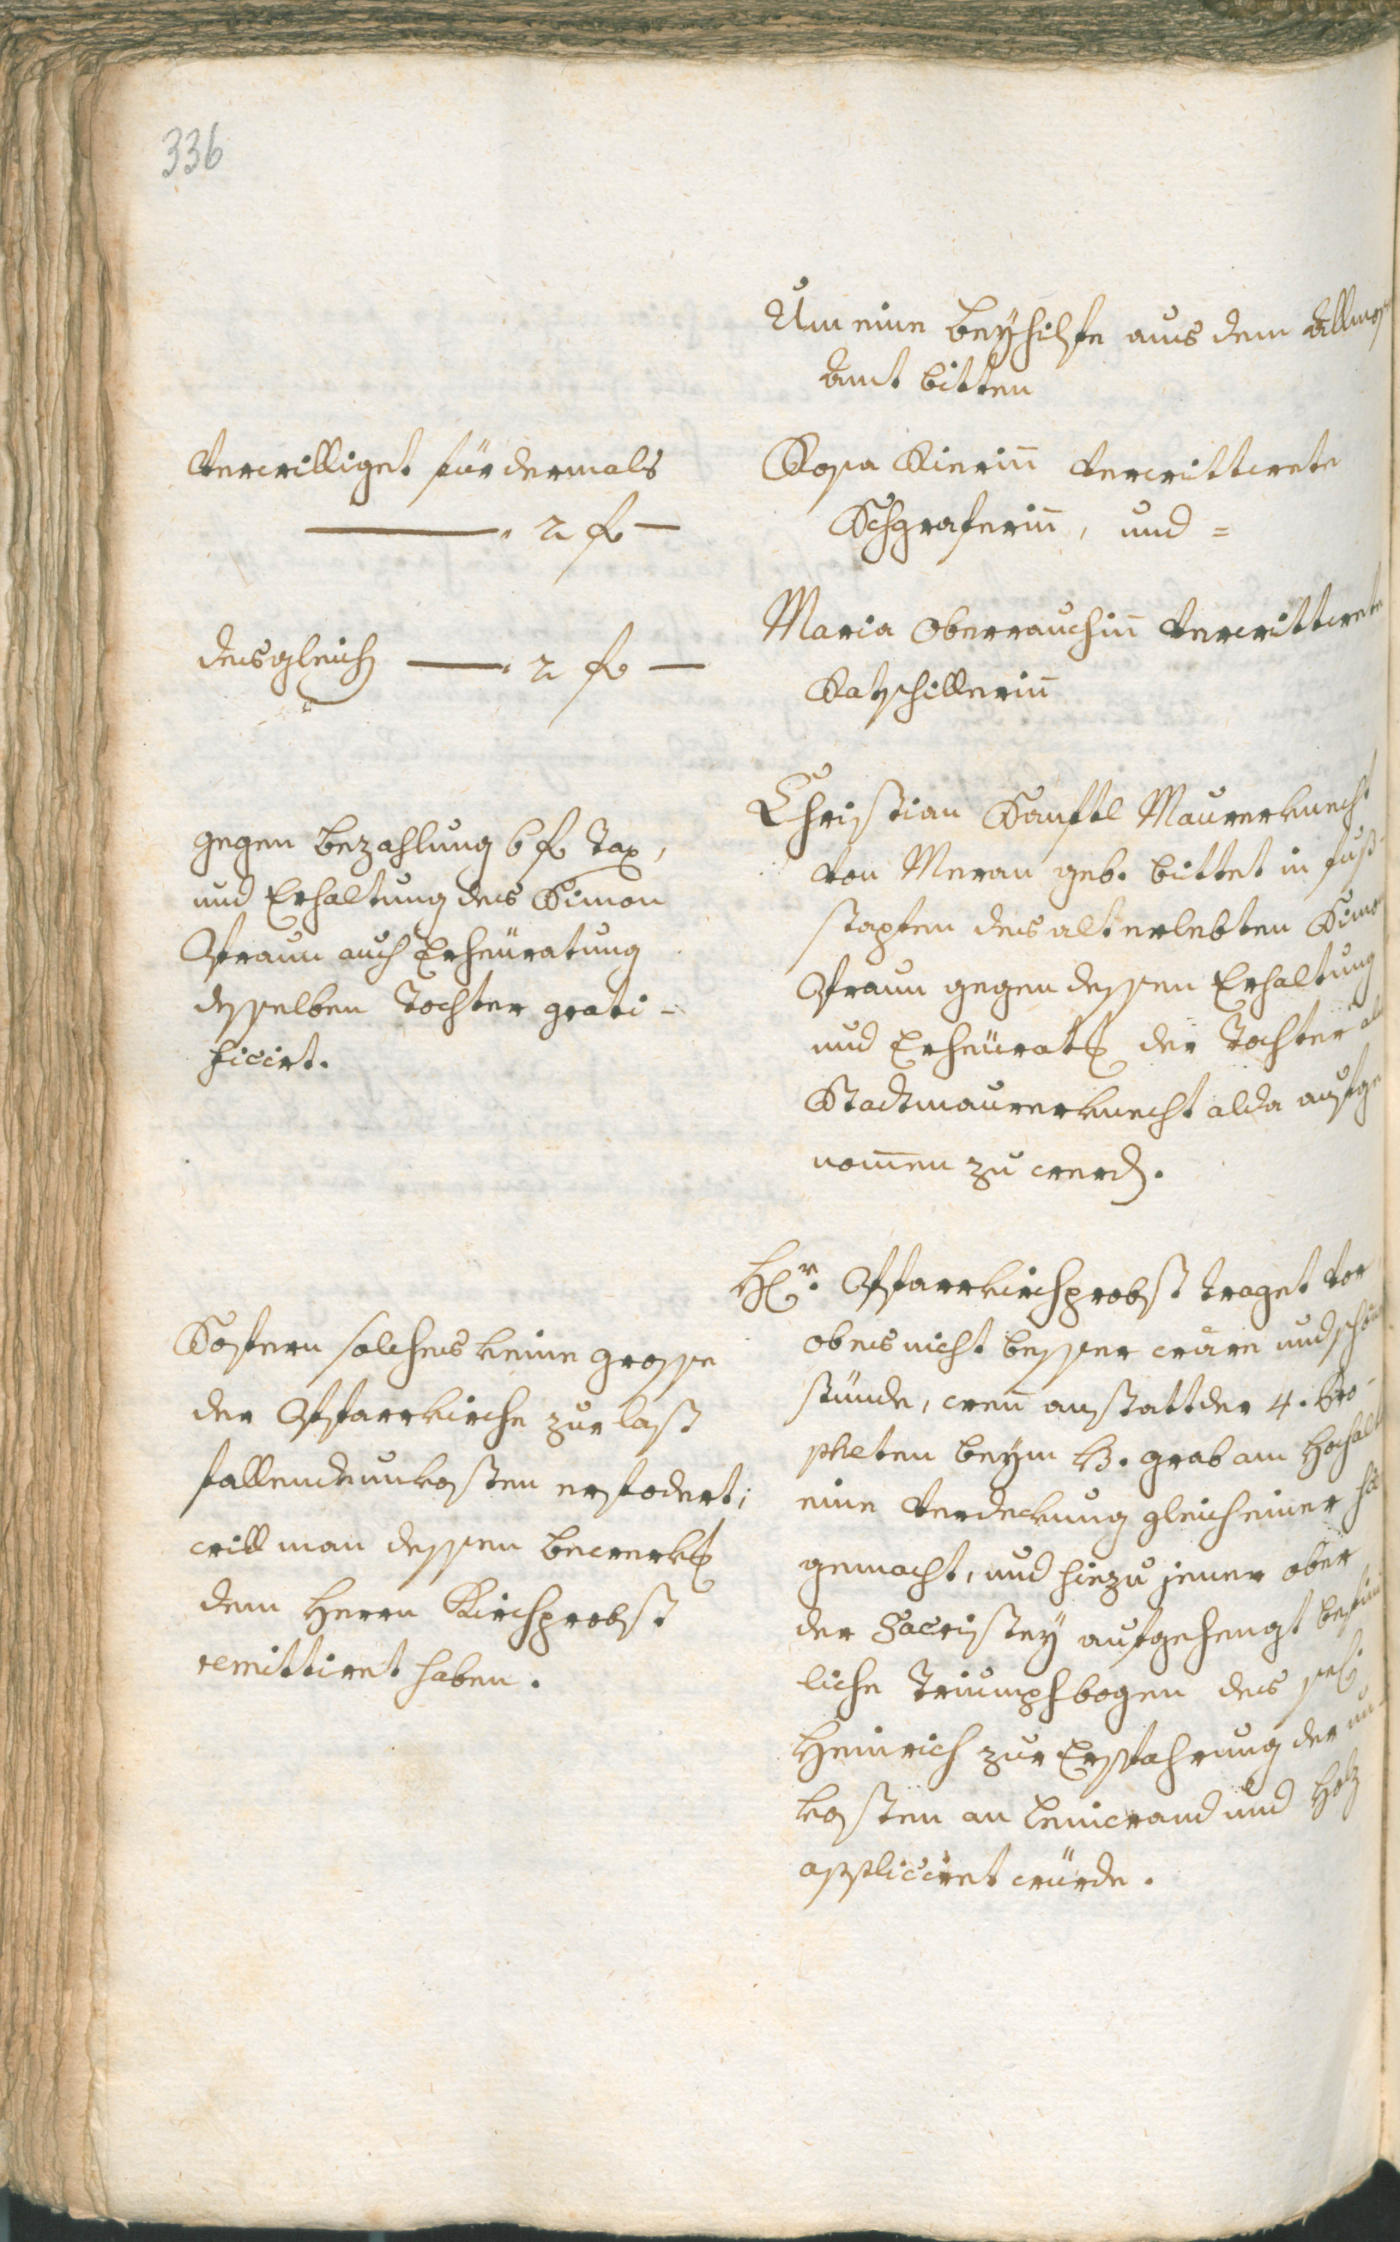 336
Um eine Beyhilfe aus dem Allmos
Amt bitten
Verwilliget für dermals
2 f
Rosa Rierin verwittwete
Schgraferin, und =
desgleich 2 f
Maria Oberrauchin verwittwete
Katschillerin
gegen Bezahlung 6 f Tax,
und Erhaltung des Simon
Pfraun auch Erheüratung
desselben Tochter grati-
ficirt.
Christian Sanftl Maurerknecht
von Meran geb. bittet in fuß-
stapfen des alt erlebten Simo
Pfraun gegen dessen Erhaltung
und Erheürat der Tochter als
Stadtmaurerknecht alda aufge
nomen zu werd.
Sofern solches keine grosse
der Pfarrkirche zur last
fallende unkosten erfodert;
will man dessen bewerk
dem Herrn Kirchprobst
remittiret haben.
H. Pfarrkirchprobst traget vor
ob es nicht besser wäre und schön
stünde, wen anstatt der 4. Pro-
pheten beym H. grab am Hochalt
eine Verdeckung gleich einer
gemacht, und hiezu jener ober
der Sacristey aufgehengt befind
liche Triumphbogen des sel
Heinrich zur Erspahrung der un
kosten an Leinwand und Holz
appliciret würde.